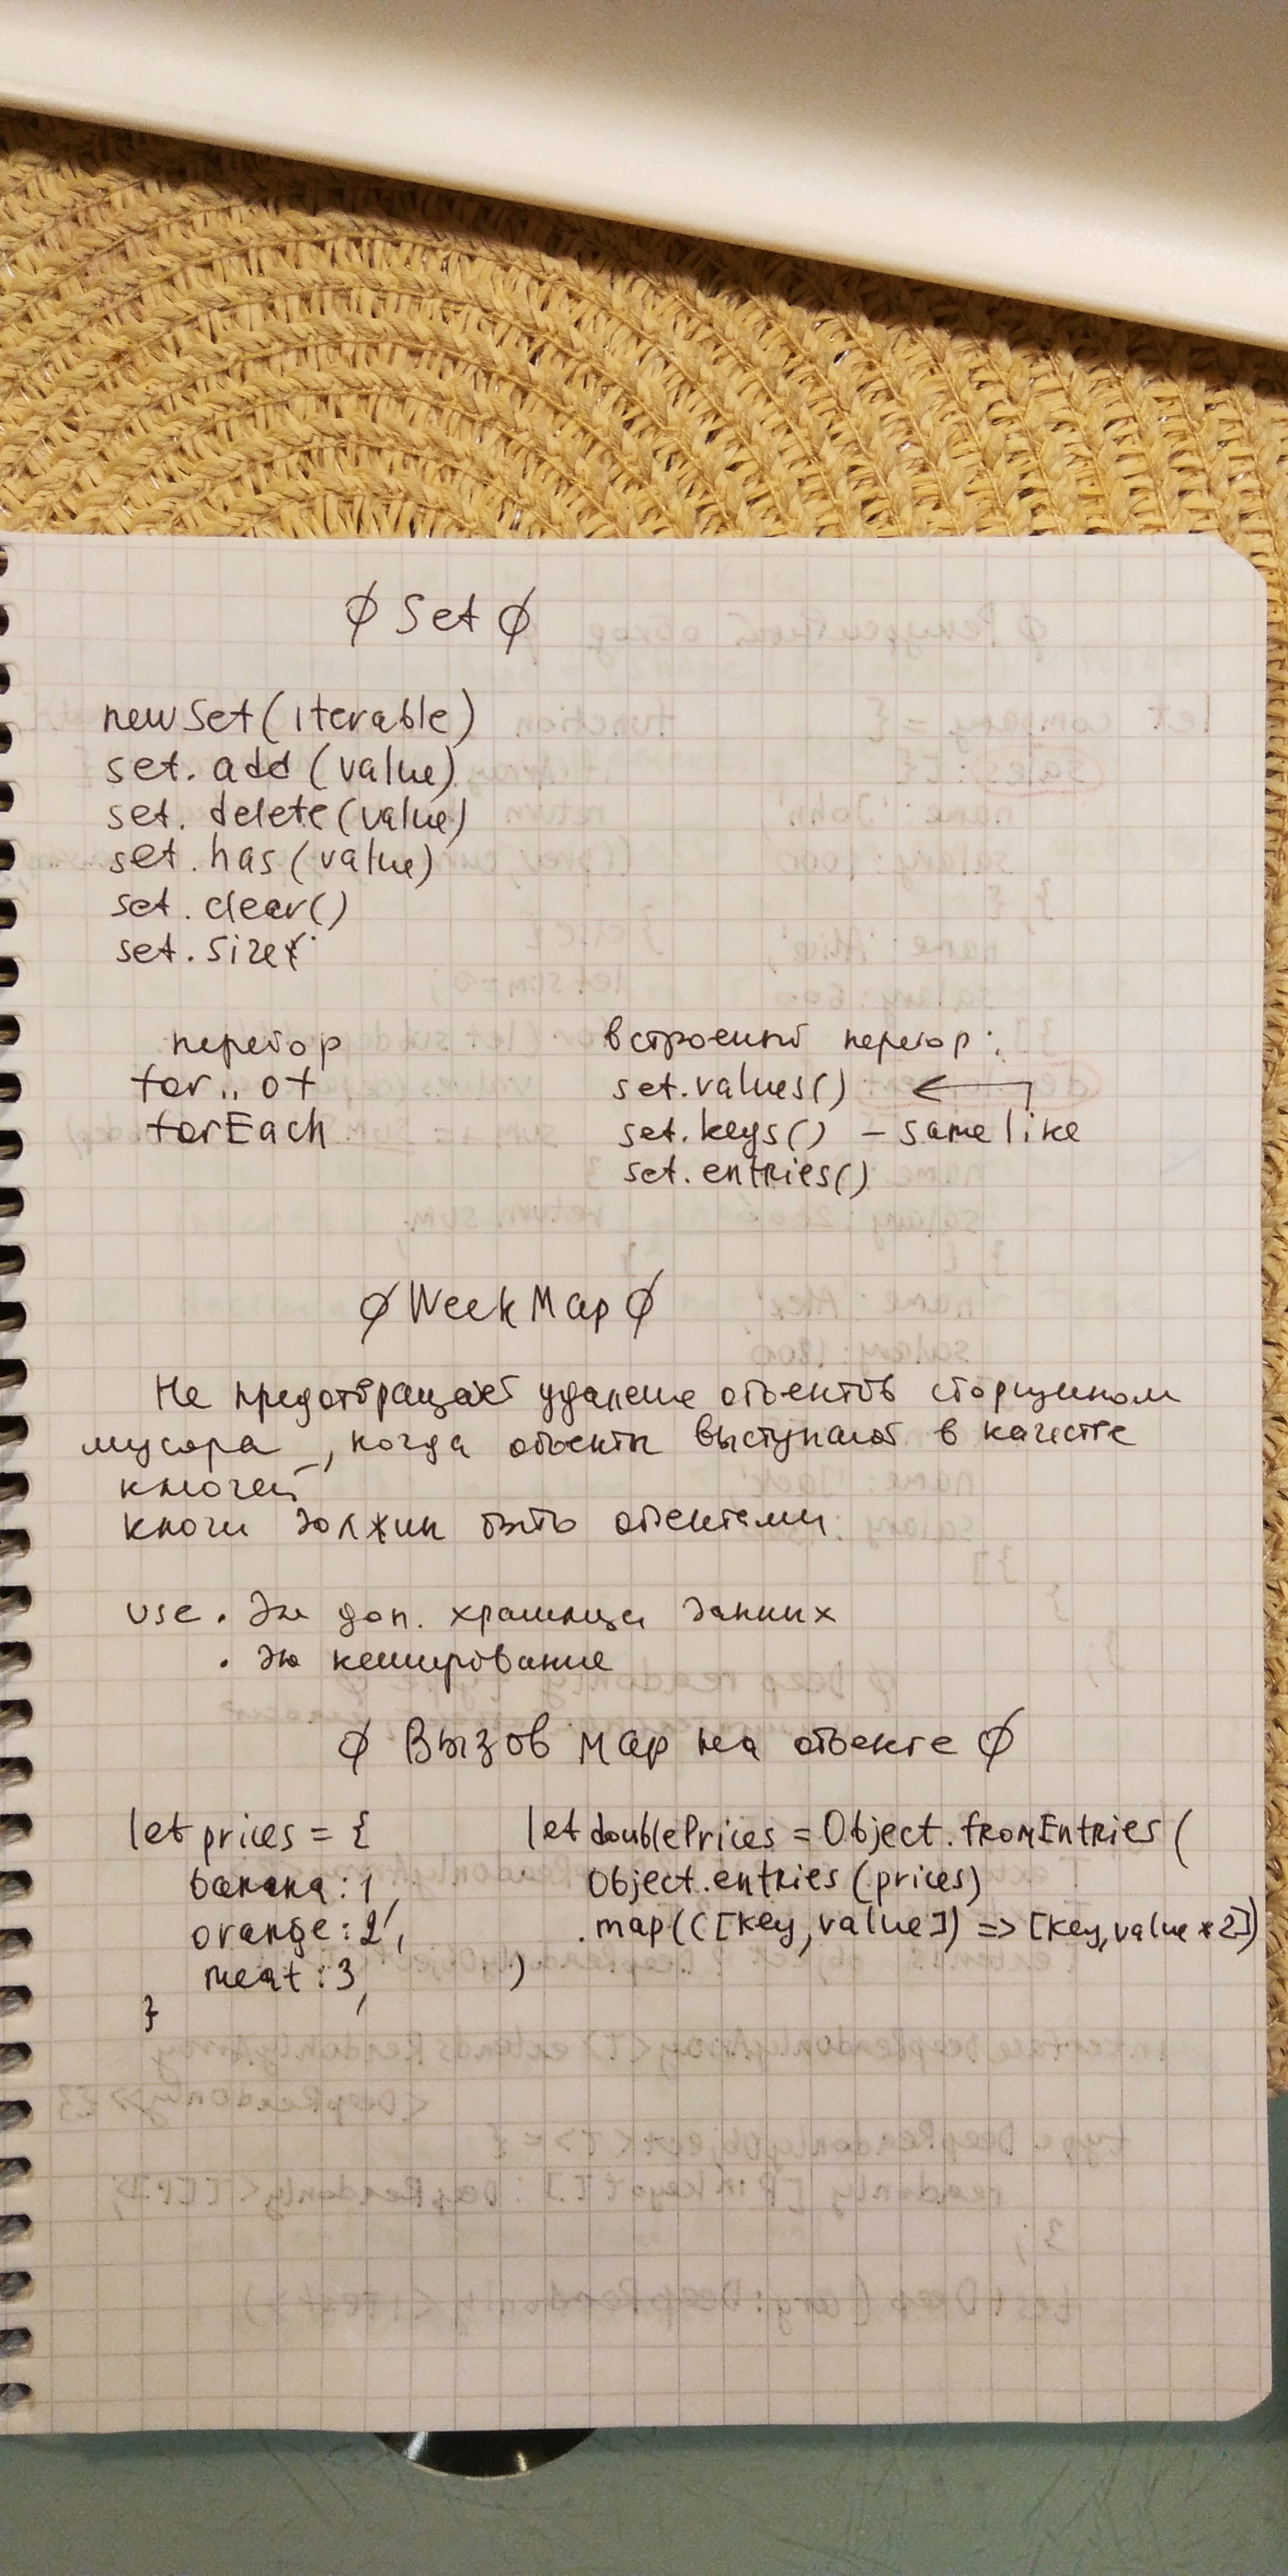 ∅ Set ∅
new Set(iterable)
set.add(value)
set.delete(value)
set.has(value)
set.clear()
set.size
перебор
for..of
forEach
встроенный перебор:
set.values() ←
set.keys() – same like
set.entries()
∅ WeekMap ∅
Не предотвращает удаление объектов сборщиком
мусора, когда объекты выступают в качестве
ключей
ключи должны быть объектами
use • для доп. хранилища данных
• для кеширование
∅ Вызов map на объекте ∅
let prices = {
banana: 1,
orange: 2,
meat: 3,
}
let doublePrices = Object.fromEntries(
Object.entries(prices)
.map(([key, value]) => [key, value * 2])
)